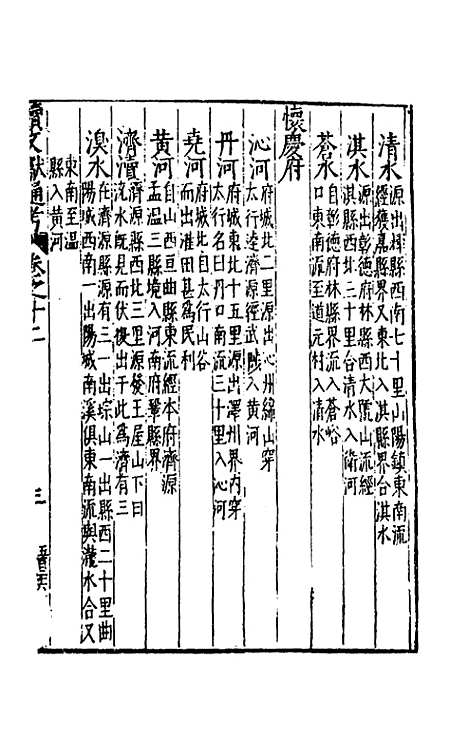 清水源出輝縣西南七十里山陽鎮東南流
經獲嘉縣界又東北入淇縣界合淇水
淇水源出彰德府林縣西大號山流經
淇縣西北三十里合清水入衛河
蒼水自彰德府林縣界流入蒼峪
口東南流至道元村入清水
懷慶府
沁河府城北二里源出沁州綿山穿
太行達濟源經武陟入黃河
丹河府城東北十五里源出澤州界內穿
太行名曰丹口南流三十里入沁河
堯河府城北自太行山谷
而出淮田甚爲民利
黃河自山西垣曲縣東流經本府濟源
孟溫三縣境入河南府鞏縣界
濟瀆濟源縣西北三里源發王屋山下曰
沇水既見而伏復出于此爲濟有三
溴水在濟源縣源有三一出琮山一出縣西二十里曲
陽城西南一出陽城南溪俱東南流與瀧水合又
東南至溫
縣入黃河
續文獻通考 卷之十二
三